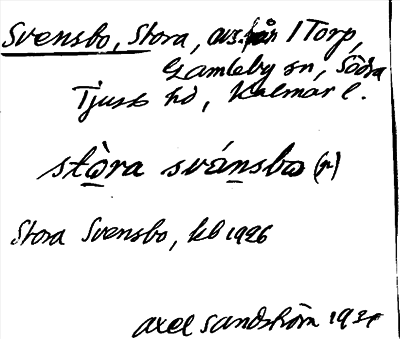 Svensbo, Stora, avs. från 1 Torp,
Gamleby sn, Södra
Tjust hd, Kalmar l.
stò̱ra svánsbo (r)
Stora Svensbo, kb 1926
Axel Sandström